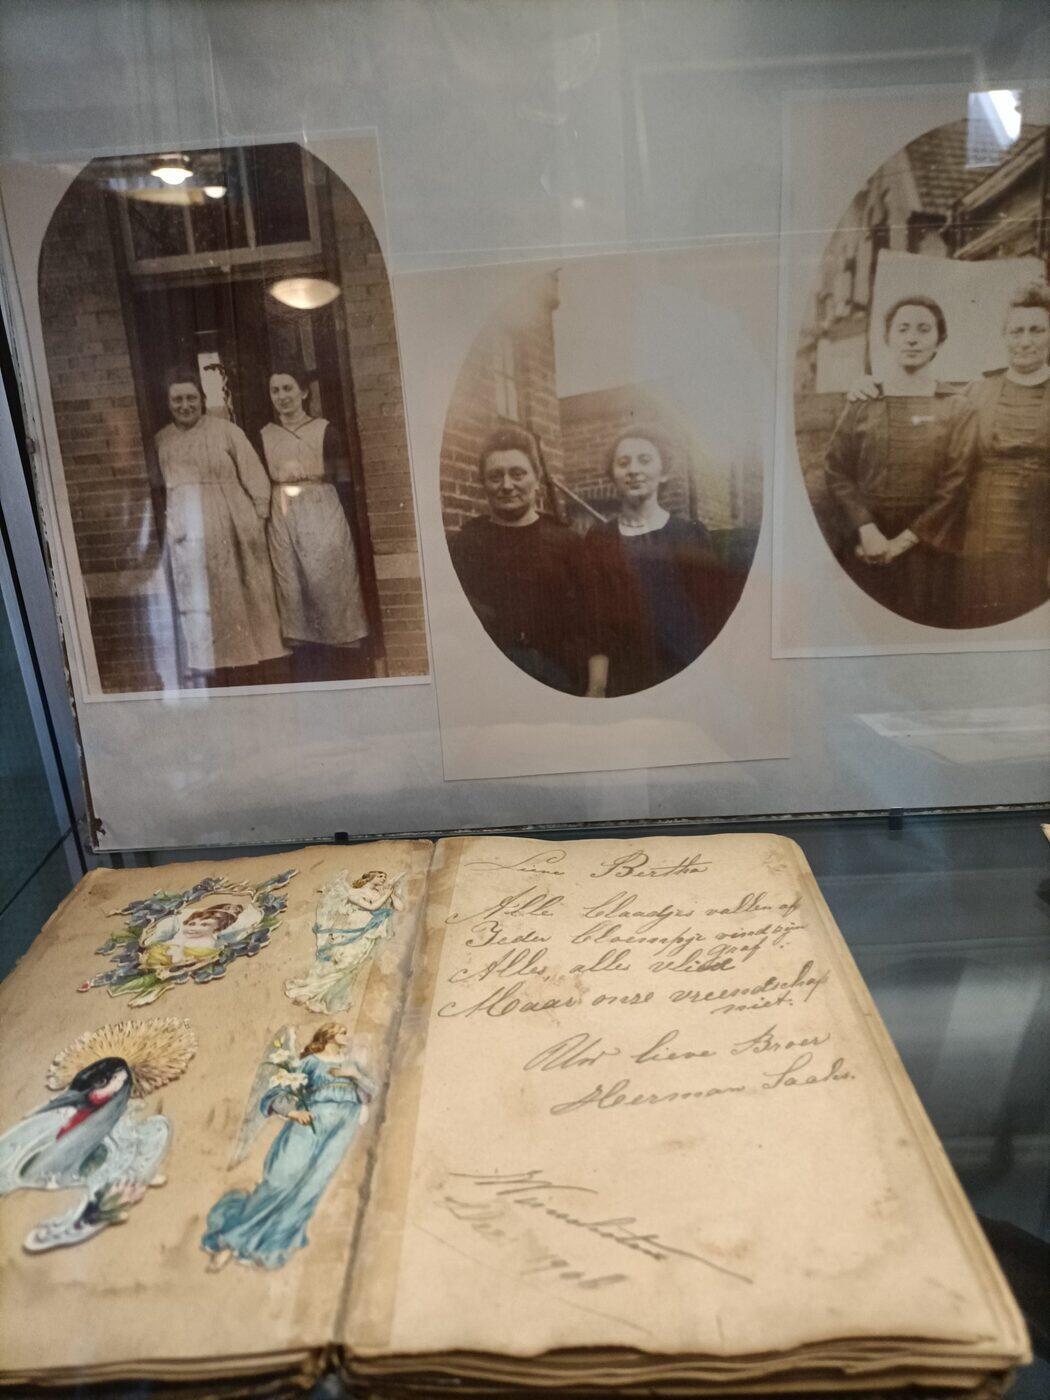 Lieve Bertha
Alle blaadjes vallen af
Ieder bloempje vind zijn
graf.
Alles, alles vlied
Maar onze vreendschap
niet.
Uw lieve Broer
Herman
Winschoten
Dec 1908